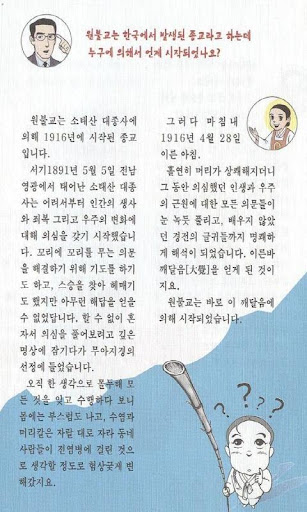 원불교는 한국에서 발생된 종교라고 하는데
누구에 의해서 언제 시작되었나요?
원불교는 소태산 대종사에
의해 1916년에 시작된 종교
입니다.
서기1891년 5월 5일 전남
영광에서 태어난 소태산 대종
사는 어려서부터 인간의 생사
와 죄복 그리고 우주의 변화에
대해 의심을 갖기 시작했습니
다. 꼬리에 꼬리를 무는 의문
을 해결하기 위해 기도를 하기
도 하고, 스승을 찾아 헤매기
도 했지만 아무런 해답을 얻을
수 없었답니다. 할 수 없이 혼
자서 의심을 풀어보려고 깊은
명상에 잠기다가 무아지경의
선정에 들었습니다.
오직 한 생각으로 몰두해 모
든 것을 잊고 수행하다 보니
몸에는 부스럼도 나고, 수염과
머리칼은 자랄 대로 자라 동네
사람들이 전염병에 걸린 것으
로 생각할 정도로 험상궂게 변
해갔지요.
그러다 마침내
1916년 4월 28일
이른 아침.
홀연히 머리가 상쾌해지더니
그 동안 의심했던 인생과 우주
의 근원에 대한 모든 의문들이
눈 녹듯 풀리고, 배우지 않았
던 경전의 글귀들까지 명쾌하
게 해석이 되었습니다. 이른바
깨달음[大覺]을 얻게 된 것이
지요.
원불교는 바로 이 깨달음에
의해 시작되었습니다.
? ? ? ?